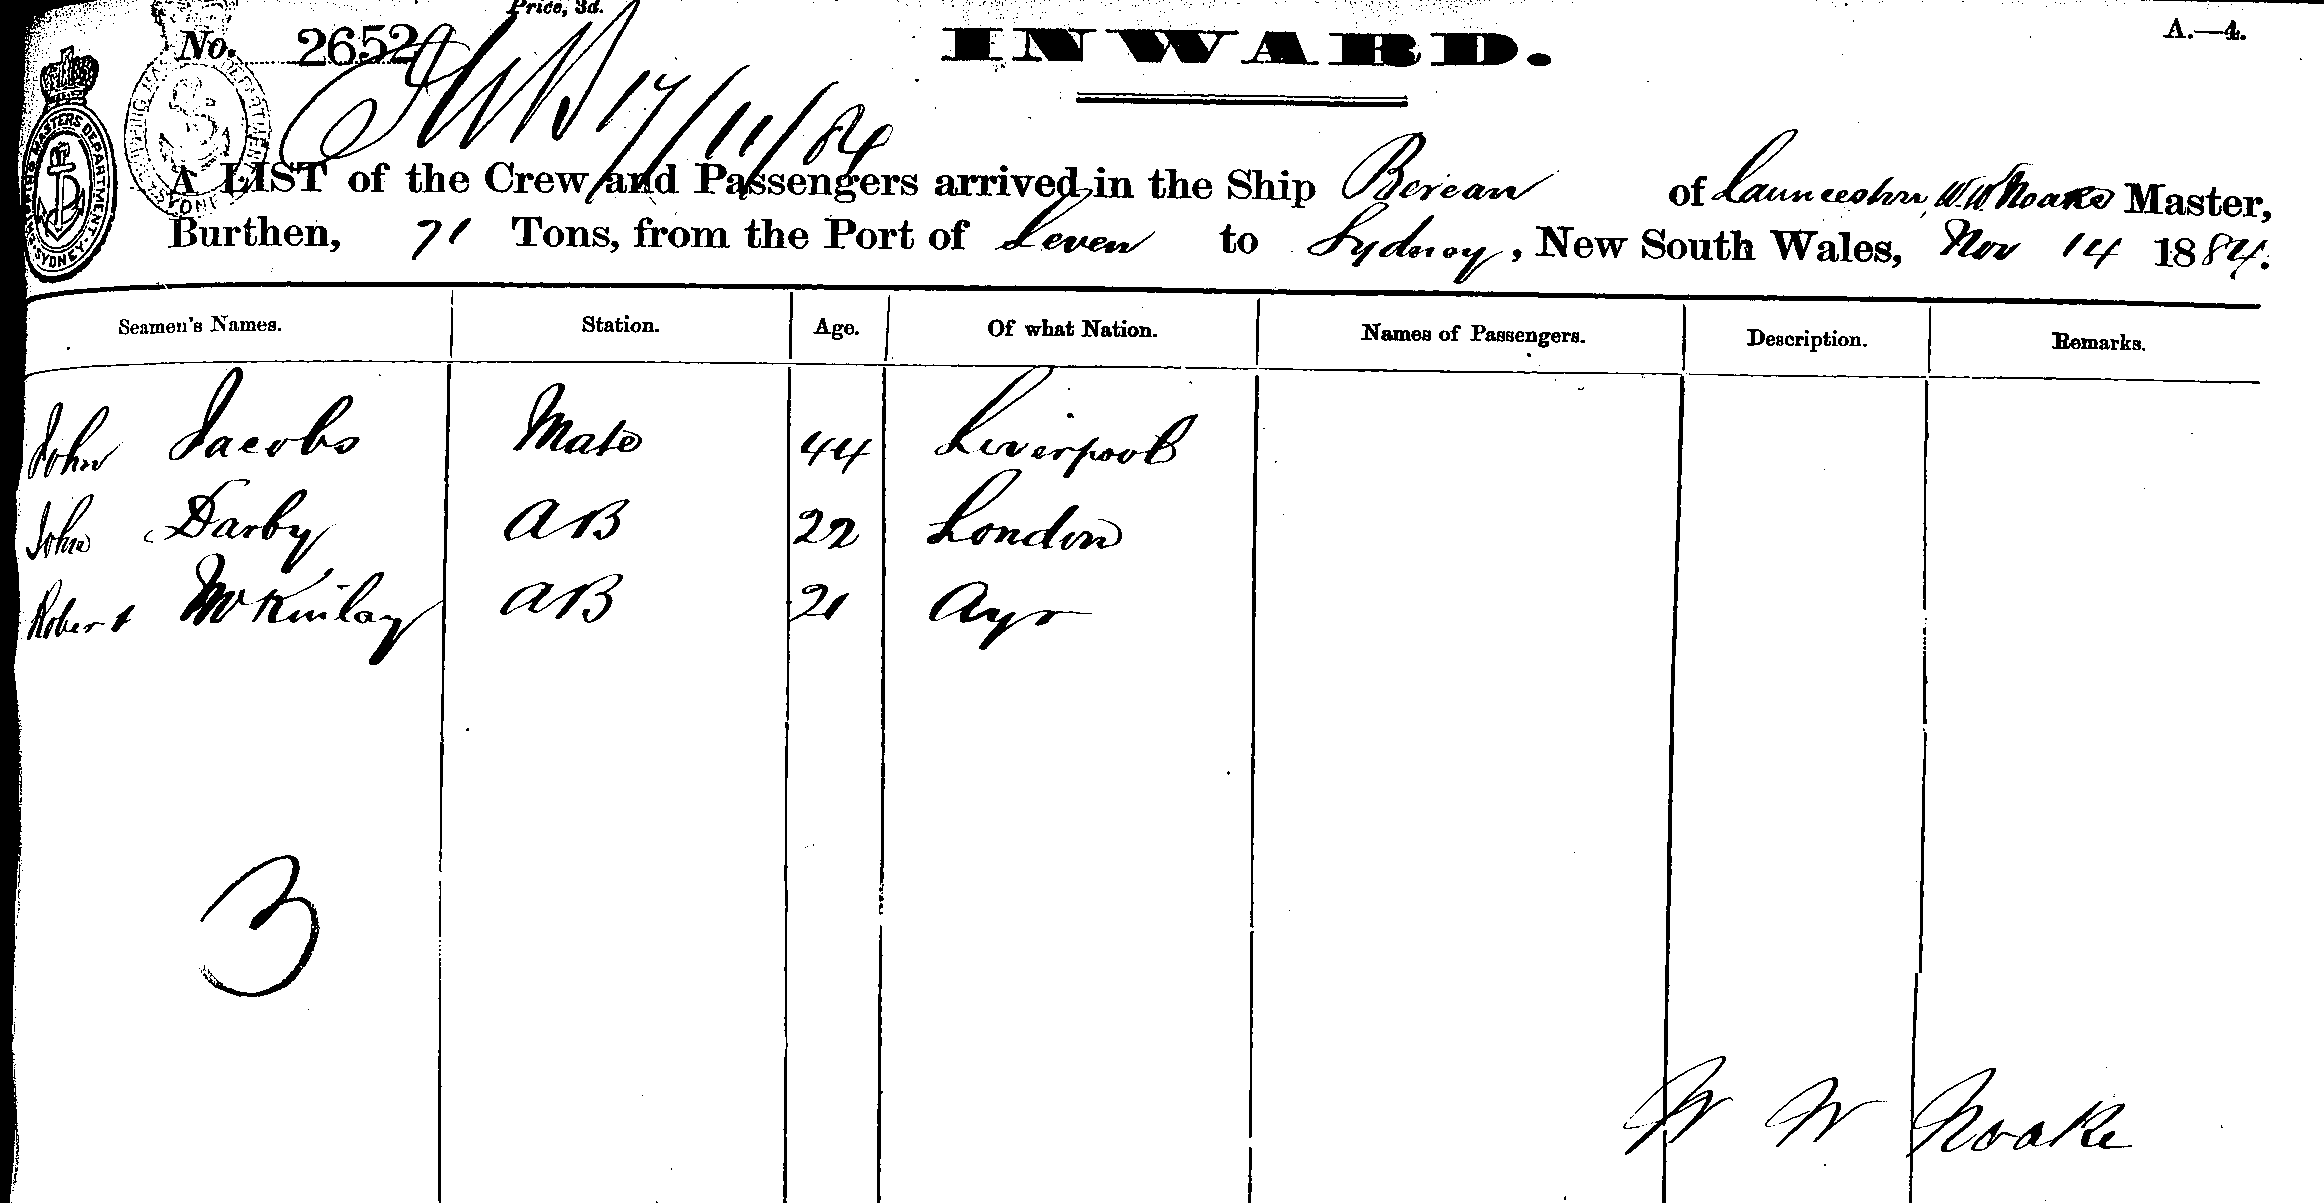 Price, 3d.
No. 2652
INWARD.
A.—4.
17/11/84
A LIST of the Crew and Passengers arrived in the Ship Berean of Launceston, W. W Noake Master,
Burthen, 71 Tons, from the Port of Leven to Sydney, New South Wales, Nov 14 1884.
Seamen's Names. Station. Age. Of what Nation. Names of Passengers. Description. Remarks.
John Jacobs Mate 44 Liverpool
John Darby AB 22 London
Robert McKinlay AB 21 Ayr
3
W W Noake